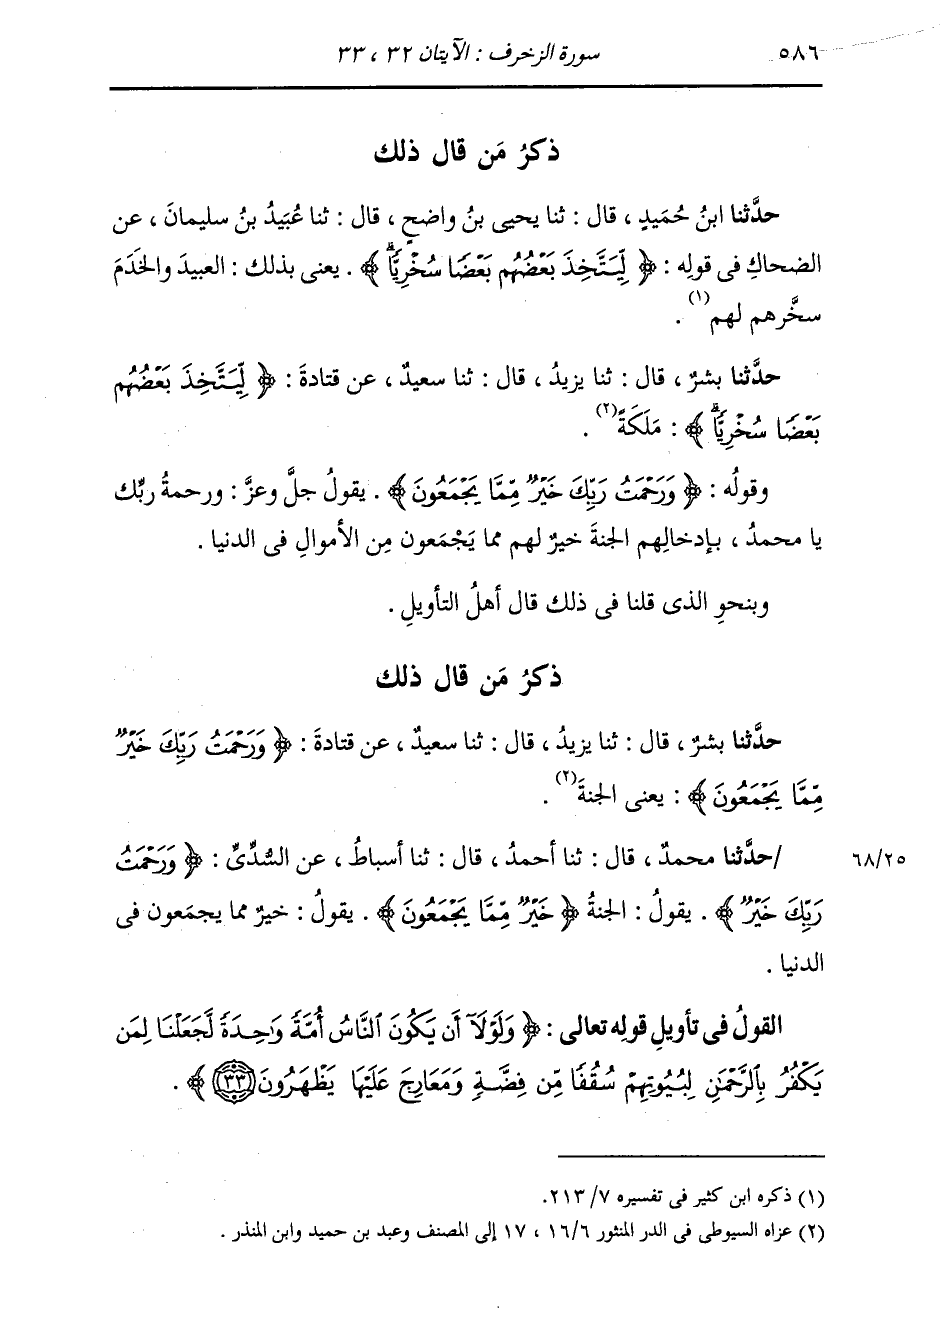 ٥٨٦ سورة الزخرف : الآيتان ٣٢ ، ٣٣
ذكرُ مَن قال ذلك
حدَّثنا ابنُ حُمَيدٍ ، قال : ثنا يحيى بنُ واضحٍ ، قال : ثنا عُبَيدُ بنُ سليمانَ ، عن
الضحاكِ فى قولِه : ﴿ لِّيَتَّخِذَ بَعْضُهُم بَعْضًا سُخْرِيًّاۗ ﴾ . يعنى بذلك : العبيدَ والخَدَمَ
سخَّرهم لهم(١) .
حدَّثنا بشرٌ ، قال : ثنا يزيدُ ، قال : ثنا سعيدٌ ، عن قتادةَ : ﴿ لِّيَتَّخِذَ بَعْضُهُم
بَعْضًا سُخْرِيًّاۗ ﴾ : مَلَكَةً(٢) .
وقولُه : ﴿ وَرَحْمَتُ رَبِّكَ خَيْرٌ مِّمَّا يَجْمَعُونَ ﴾ . يقولُ جلَّ وعزَّ : ورحمةُ ربِّك
يا محمدُ ، بإدخالِهم الجنةَ خيرٌ لهم مما يَجْمَعون مِن الأموالِ فى الدنيا .
وبنحوِ الذى قلنا فى ذلك قال أهلُ التأويلِ .
ذكرُ مَن قال ذلك
حدَّثنا بشرٌ ، قال : ثنا يزيدُ ، قال : ثنا سعيدٌ ، عن قتادةَ : ﴿ وَرَحْمَتُ رَبِّكَ خَيْرٌ
مِّمَّا يَجْمَعُونَ ﴾ : يعنى الجنةَ(٢) .
٦٨/٢٥ /حدَّثنا محمدٌ ، قال : ثنا أحمدُ ، قال : ثنا أسباطُ ، عن السُّدِّىِّ : ﴿ وَرَحْمَتُ
رَبِّكَ خَيْرٌ ﴾ . يقولُ : الجنةُ ﴿ خَيْرٌ مِّمَّا يَجْمَعُونَ ﴾ . يقولُ : خيرٌ مما يجمَعون فى
الدنيا .
القولُ فى تأويلِ قولِه تعالى : ﴿ وَلَوْلَآ أَن يَكُونَ ٱلنَّاسُ أُمَّةً وَٰحِدَةً لَّجَعَلْنَا لِمَن
يَكْفُرُ بِٱلرَّحْمَٰنِ لِبُيُوتِهِمْ سُقُفًا مِّن فِضَّةٍ وَمَعَارِجَ عَلَيْهَا يَظْهَرُونَ (٣٣) ﴾ .
(١) ذكره ابن كثير فى تفسيره ٢١٣/٧.
(٢) عزاه السيوطى فى الدر المنثور ١٦/٦ ، ١٧ إلى المصنف وعبد بن حميد وابن المنذر .